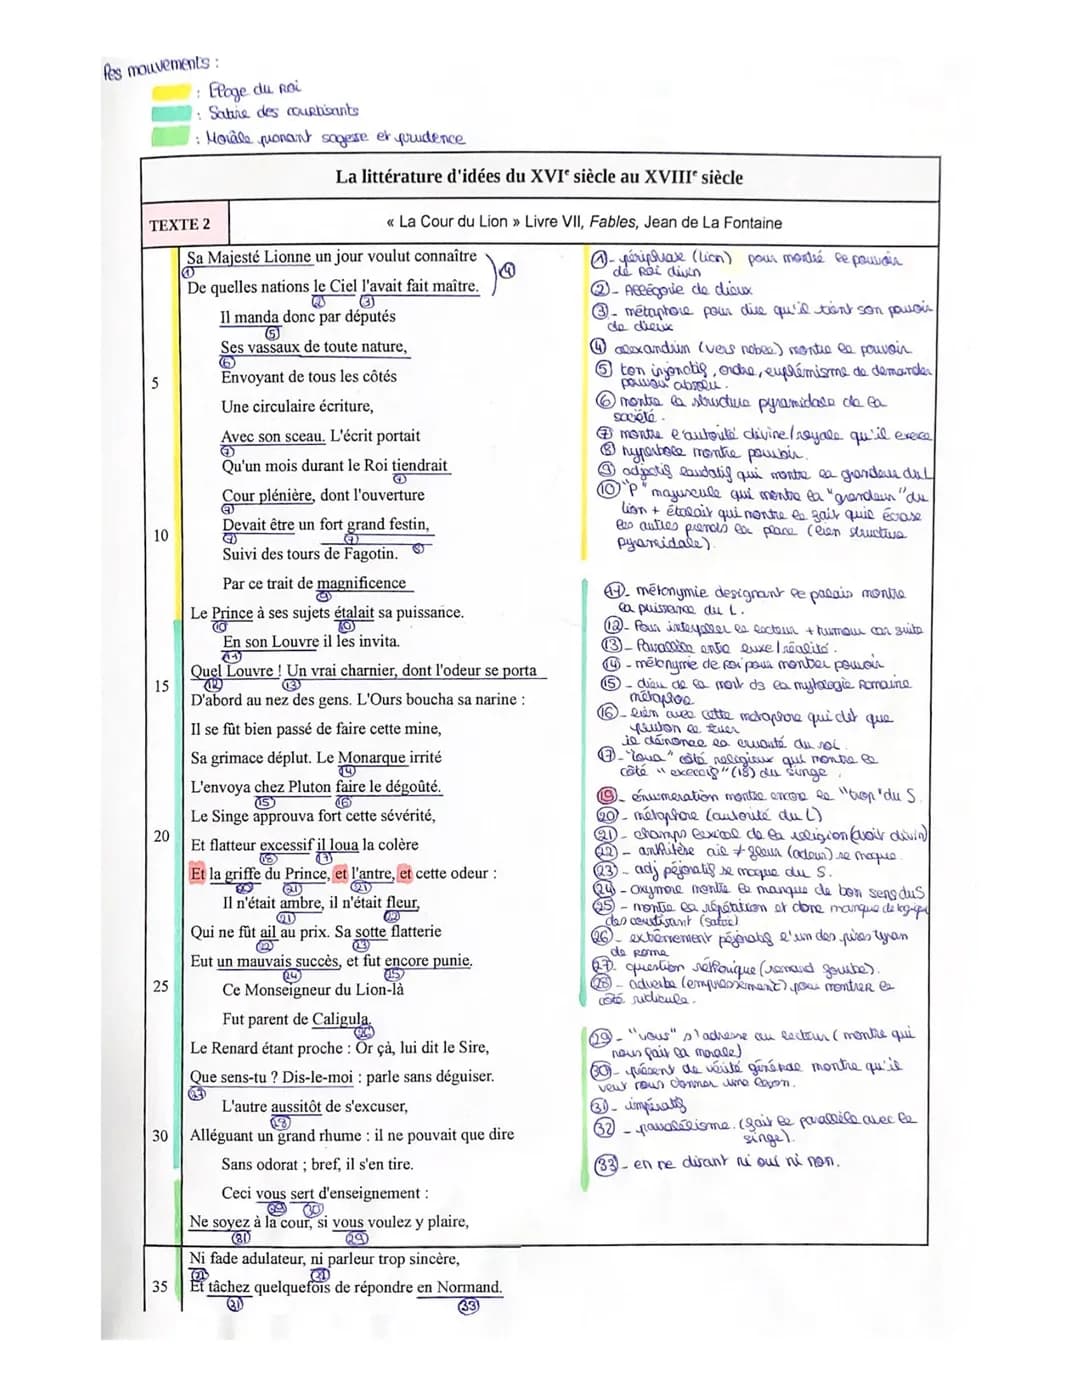 Les mouvements :
: Eloge du Roi
: Satire des courtisants
: Morale pronant sagesse et prudence
La littérature d'idées du XVIᵉ siècle au XVIIIᵉ siècle
TEXTE 2
« La Cour du Lion » Livre VII, Fables, Jean de La Fontaine
Sa Majesté Lionne un jour voulut connaître
De quelles nations le Ciel l'avait fait maître.
Il manda donc par députés
Ses vassaux de toute nature,
5 Envoyant de tous les côtés
Une circulaire écriture,
Avec son sceau. L'écrit portait
Qu'un mois durant le Roi tiendrait
Cour plénière, dont l'ouverture
10 Devait être un fort grand festin,
Suivi des tours de Fagotin.
Par ce trait de magnificence
Le Prince à ses sujets étalait sa puissance.
En son Louvre il les invita.
15 Quel Louvre ! Un vrai charnier, dont l'odeur se porta
D'abord au nez des gens. L'Ours boucha sa narine :
Il se fût bien passé de faire cette mine,
Sa grimace déplut. Le Monarque irrité
L'envoya chez Pluton faire le dégoûté.
Le Singe approuva fort cette sévérité,
20 Et flatteur excessif il loua la colère
Et la griffe du Prince, et l'antre, et cette odeur :
Il n'était ambre, il n'était fleur,
Qui ne fût ail au prix. Sa sotte flatterie
Eut un mauvais succès, et fut encore punie.
25 Ce Monseigneur du Lion-là
Fut parent de Caligula.
Le Renard étant proche : Or çà, lui dit le Sire,
Que sens-tu ? Dis-le-moi : parle sans déguiser.
L'autre aussitôt de s'excuser,
30 Alléguant un grand rhume : il ne pouvait que dire
Sans odorat ; bref, il s'en tire.
Ceci vous sert d'enseignement :
Ne soyez à la cour, si vous voulez y plaire,
Ni fade adulateur, ni parleur trop sincère,
35 Et tâchez quelquefois de répondre en Normand.
1 - périphrase (lion) pour montré le pouvoir
de Roi divin
2 - Allégorie de dieux
3 - métaphore pour dire qu'il tient son pouvoir
de dieux
4 alexandrin (vers noble) montre le pouvoir
5 ton injonctif, ordre, euphémisme de demander
pouvoir absolu.
6 montre la structure pyramidale de la
société.
7 montre l'autorité divine/royale qu'il exerce
8 hyperbole montre pouvoir.
9 adjectif laudatif qui montre la grandeur du L
10 "P" majuscule qui montre la "grandeur" du
lion + étalait qui montre le fait qu'il écrase
les autres prends la place (lien structure
pyramidale).
11 - métonymie designant le palais montre
la puissance du L.
12 - Pour interpeller le lecteur + humour car suite
13 - Parallèle entre luxe/réalité.
14 - métonymie de Roi pour montrer pouvoir
15 - dieu de la mort ds la mythologie Romaine
métaphore
16 - lien avec cette métaphore qui dit que
pluton le tuer
il dénonce la cruauté du roi.
17 - "loua" côté religieux qui montre le
côté "excessif" (18) du singe.
19 - énumération montre encore le "trop" du S.
20 - métaphore (autorité du L)
21 - champs lexical de la religion (droit divin)
22 - antithèse ail ≠ fleur (odeur) se moque.
23 - adj péjoratif se moque du S.
24 - oxymore montre le manque de bon sens du S
25 - montre la répétition et donc manque de logique
des courtisant (satire)
26 - extrêmement péjoratif l'un des pires tyran
de Rome
27 - question réthorique (renard fourbe).
28 - adverbe (empressement) pour montrer le
côté ridicule.
29 - "vous" s'adresse au lecteur (montre qui
nous fait la morale)
30 - présent de vérité générale montre qu'il
veut nous donner une leçon.
31 - impératif
32 - parallélisme. (fait le parallèle avec le
singe).
33 - en ne disant ni oui ni non.